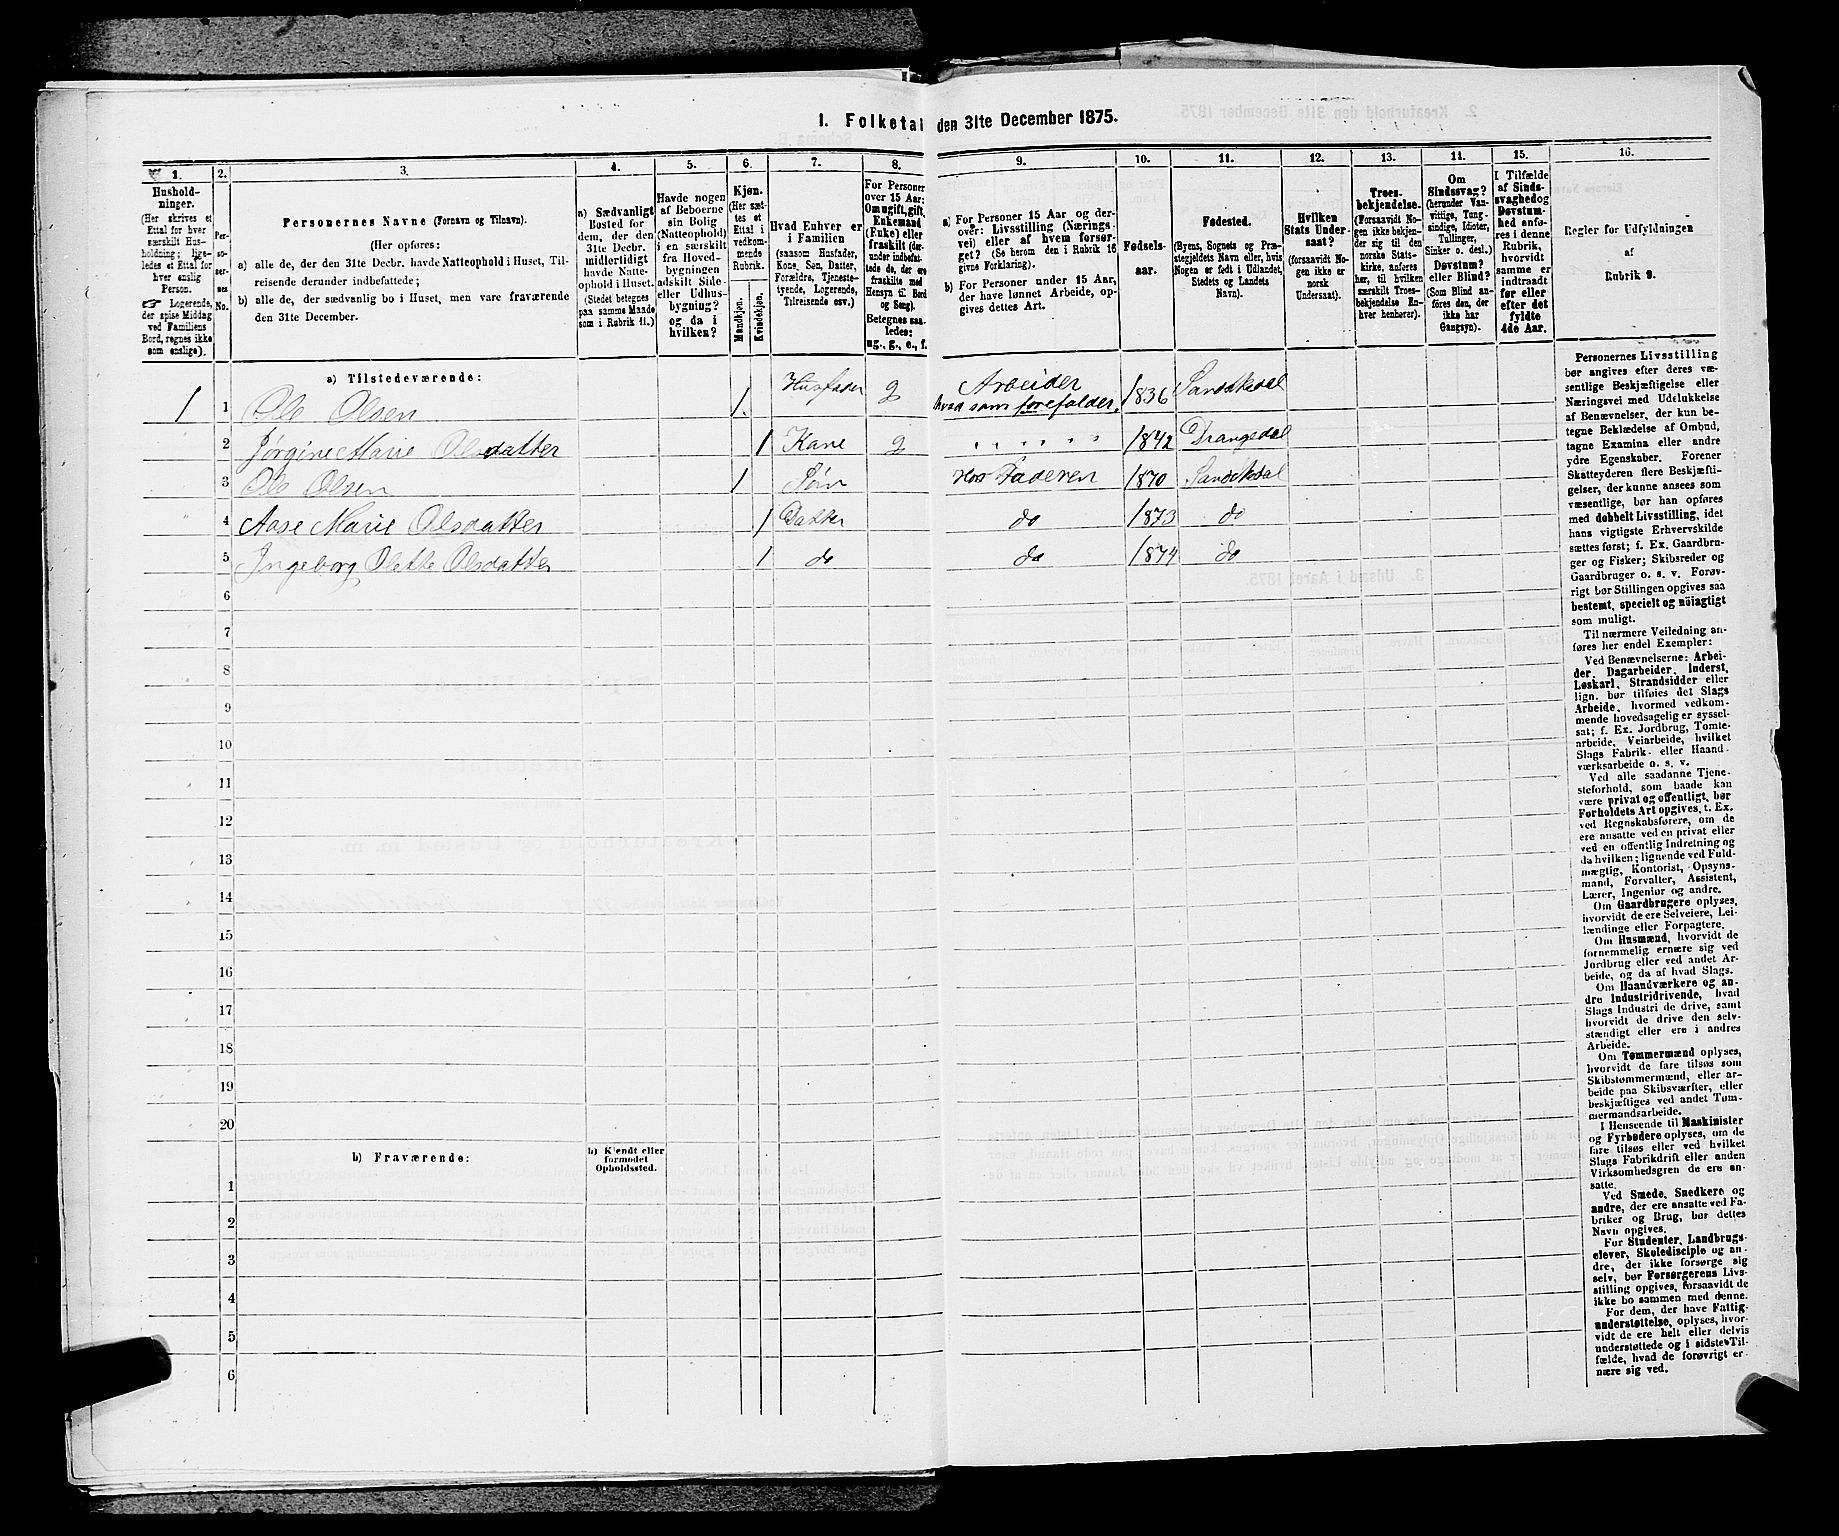 I. Folketal den 31te December 1875.
1.
2.
3.
4.
5.
6.
7.
8.
9.
10.
11.
12.
13.
14.
15.
16.
Hushold-
ninger.
(Her skrives et
Ettal for hver
særskilt Hus-
holdning; lige-
ledes et Ettal for
hver enslig
Person.
☞ Logerende,
der spise Middag
ved Familiens
Bord, regnes ikke
som enslige).
Per-
so-
ner-
nes
No.
Personernes Navne (Fornavn og Tilnavn).
(Her opføres:
a) alle de, der den 31te Decbr. havde Natteophold i Huset, Til-
reisende derunder indbefattede;
b) alle de, der sædvanlig bo i Huset, men vare fraværende
den 31te December.
a) Sædvanligt
Bosted for
dem, der den
31te Decbr.
midlertidigt
havde Natte-
ophold i Huset.
(Stedet betegnes
paa samme Maade
som i Rubrik 11.)
Havde nogen
af Beboerne
sin Bolig
(Natteophold)
i en særskilt
fra Hoved-
bygningen
adskilt Side-
eller Udhus-
bygning?
og da i
hvilken?
Kjøn.
(Her sæt-
tes et
Ettal i
vedkom-
mende
Rubrik.
Mandkjøn.
Kvindekjøn.
Hvad Enhver er
i Familien
(saasom Husfader,
Kone, Søn, Datter,
Forældre, Tjeneste-
tyende, Logerende,
Tilreisende osv.)
For Personer
over 15 Aar:
Om ugift, gift,
Enkemand
(Enke) eller
fraskilt (der-
under indbefat-
tede de, der ere
fraskilte med
Hensyn til Bord
og Seng).
Betegnes saa-
ledes:
ug., g., e., f.
a) For Personer 15 Aar og der-
over: Livsstilling (Nærings-
vei) eller af hvem forsør-
get? (Se herom den i Rubrik 16
givne Forklaring).
b) For Personer under 15 Aar,
der have lønnet Arbeide, op-
gives dettes Art.
Fødsels-
aar.
Fødested.
(Byens, Sognets og Præ-
stegjeldets Navn eller, hvis
Nogen er født i Udlandet,
Stedets og Landets
Navn).
Hvilken
Stats Under-
saat?
(forsaavidt No-
gen ikke er
norsk
Undersaat).
Troes-
bekjendelse.
(Forsaavidt No-
gen ikke bekjen-
der sig til den
norske Stats-
kirke, anføres
her, til hvilken
særskilt Troes-
bekjendelse En-
hver henhører).
Om
Sindssvag?
(herunder Van-
vittige, Tung-
sindige, Idioter,
Tullinger,
Sinker o. desl.)
Døvstum?
eller Blind?
(Som Blind an-
føres den, der
ikke har
Gangsyn).
I Tilfælde
af Sinds-
svaghed og
Døvstum-
hed anfø-
res i denne
Rubrik,
hvorvidt
samme er
indtraadt
før eller
efter det
fyldte
4de Aar.
Regler for Udfyldningen
af
Rubrik 9.
a) Tilstedeværende:
1 1 Ole Olsen 1. Husfader g Arbeider hvad som forefalder. 1836 Sandøkedal
2 Jørgine Marie Olsdatter 1 Kone g " " " " " " 1842 Drangedal
3 Ole Olsen 1 Søn Hos Faderen 1870 Sandøkedal
4 Aase Marie Olsdatter 1 Datter do 1873 do
5 Ingeborg Olette Olsdatter 1 do do 1874 do
6
7
8
9
10
11
12
13
14
15
16
17
18
19
20
b) Fraværende:
b) Kjendt eller
formodet
Opholdssted.
1
2
3
4
5
6
Personernes Livsstilling
bør angives efter deres væ-
sentlige Beskjæftigelse eller
Næringsvei med Udelukkelse
af Benævnelser, der kun be-
tegne Beklædelse af Ombud,
tagne Examina eller andre
ydre Egenskaber. Forener
Skatteyderen flere Beskjæfti-
gelser, der kunne ansees som
væsentlige, bør han opføres
med dobbelt Livsstilling, idet
hans vigtigste Erhvervskilde
sættes først; f. Ex. Gaardbru-
ger og Fisker; Skibsreder og
Gaardbruger o. s. v. Forøv-
rigt bør Stillingen opgives saa
bestemt, specielt og nöiagtigt
som muligt.
Til nærmere Veiledning an-
føres her endel Exempler:
Ved Benævnelserne: Arbei-
der, Dagarbeider, Inderst,
Løskarl, Strandsidder eller
lign. bør tilføies det Slags
Arbeide, hvormed vedkom-
mende hovedsagelig er syssel-
sat; f. Ex. Jordbrug, Tomte-
arbeide, Veiarbeide, hvilket
Slags Fabrik- eller Haand-
værksarbeide o. s. v.
Ved alle saadanne Tjene-
steforhold, som baade kan
være privat og offentligt, bør
Forholdets Art opgives, t. Ex.
ved Regnskabsførere, om de
ere ansatte ved en privat eller
ved en offentlig Indretning og
da hvilken; lignende ved Fuld-
mægtig, Kontorist, Opsyns-
mand, Forvalter, Assistent,
Lærer, Ingeniør og andre.
Om Gaardbrugere oplyses,
hvorvidt de ere Selveiere, Lei-
lændinge eller Forpagtere.
Om Husmænd, hvorvidt de
fornemmelig ernære sig ved
Jordbrug eller ved andet Ar-
beide, og da af hvad Slags.
Om Haandværkere og an-
dre Industridrivende, hvad
Slags Industri de drive, samt
hvorvidt de drive den selv-
stændigt eller ere i andres
Arbeide.
Om Tømmermænd oplyses,
hvorvidt de fare tilsøs som
Skibstømmermænd, eller ar-
beide paa Skibsværfter, eller
beskjæftiges ved andet Tøm-
mermandsarbeide.
I Henseende til Maskinister
og Fyrbødere oplyses, om de
fare tilsøs eller ved hvilket
Slags Fabrikdrift eller anden
Virksomhedsgren de ere an-
satte.
Ved Smede, Snedkere og
andre, der ere ansatte ved Fa-
briker og Brug, bør dettes
Navn opgives.
For Studenter, Landbrugs-
elever, Skoledisciple og an-
dre, der ikke forsørge sig
selv, bør Forsørgerens Livs-
stilling opgives, forsaavidt de
ikke bo sammen med denne.
For dem, der have Fattig-
understøttelse, oplyses, hvor-
vidt de ere helt eller delvis
understøttede og i sidste Til-
fælde, hvad de forøvrigt er-
nære sig ved.